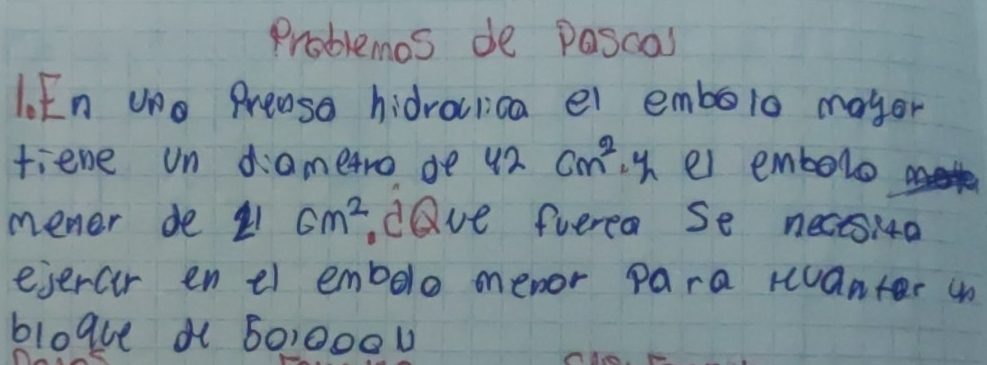 Problemas de Pascal
1. En una Prensa hidraulica el embolo mayor
tiene un diametro de 42 cm². y el embolo
menor de 21 cm². ¿Que fuerza se necesita
ejercer en el embolo menor para levantar un
bloque de 50,000 N
Datos